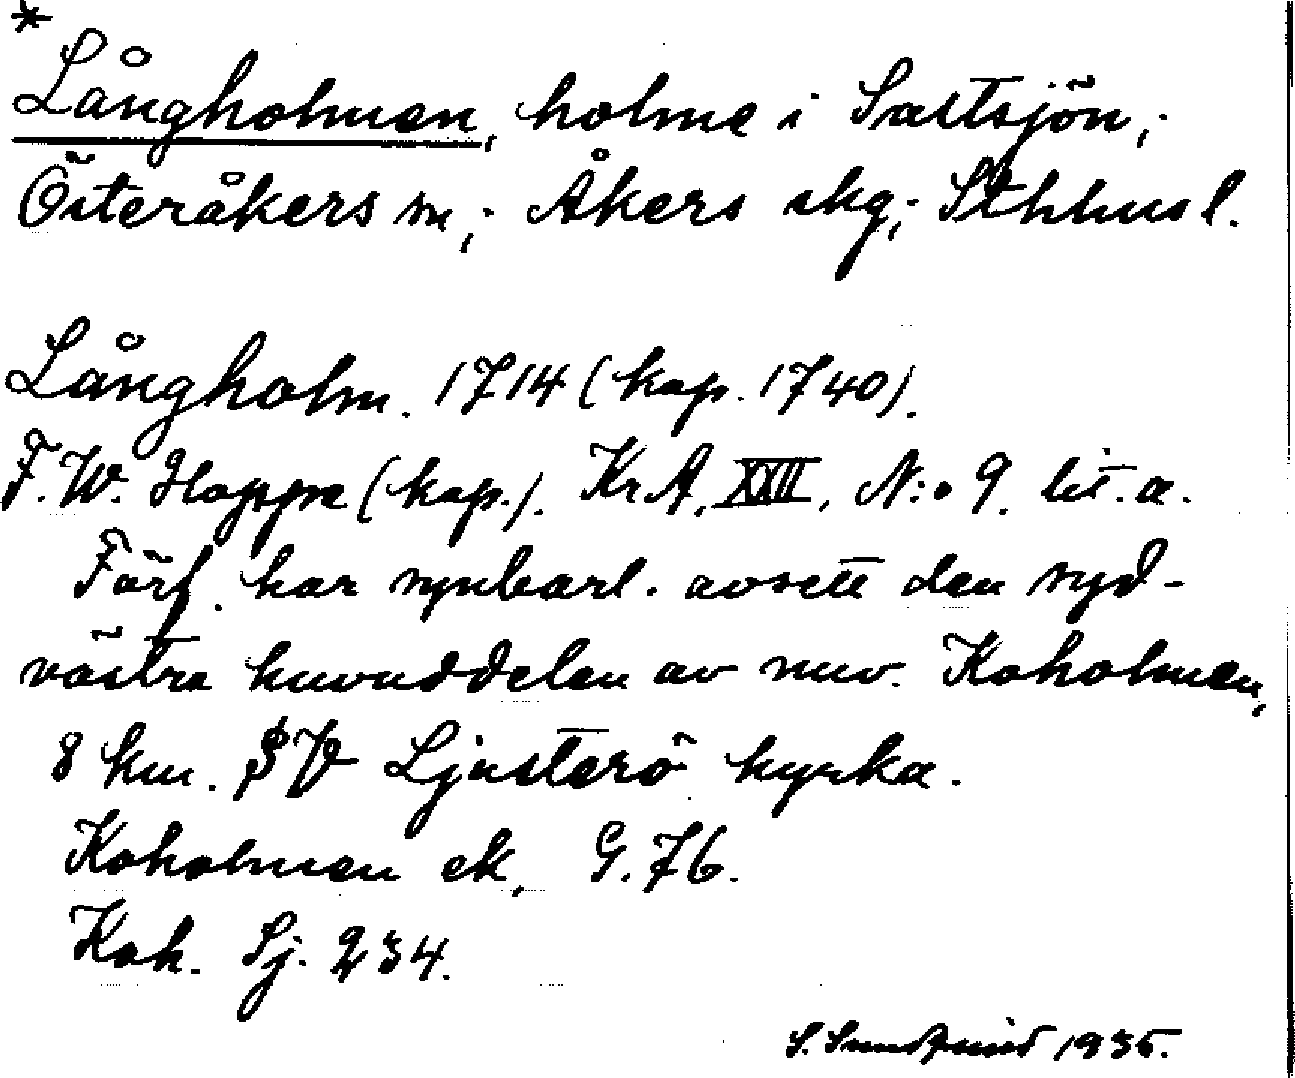 *
Långholmen, holme i Saltsjön,;
Österåkers sn,; Åkers skg,; Sthlms l.
Långholm. 1714 (kop. 1740).
F. W. Hoppe (kop.). KrA, XXIII, N:o 9. lit. a.
Förf. har synbarl. avsett den syd-
västra huvuddelen av nuv. Koholmen,
8 km. SV Ljusterö kyrka.
Koholmen ek, G. 76.
Koh. Sj. 234.
S. 1935.